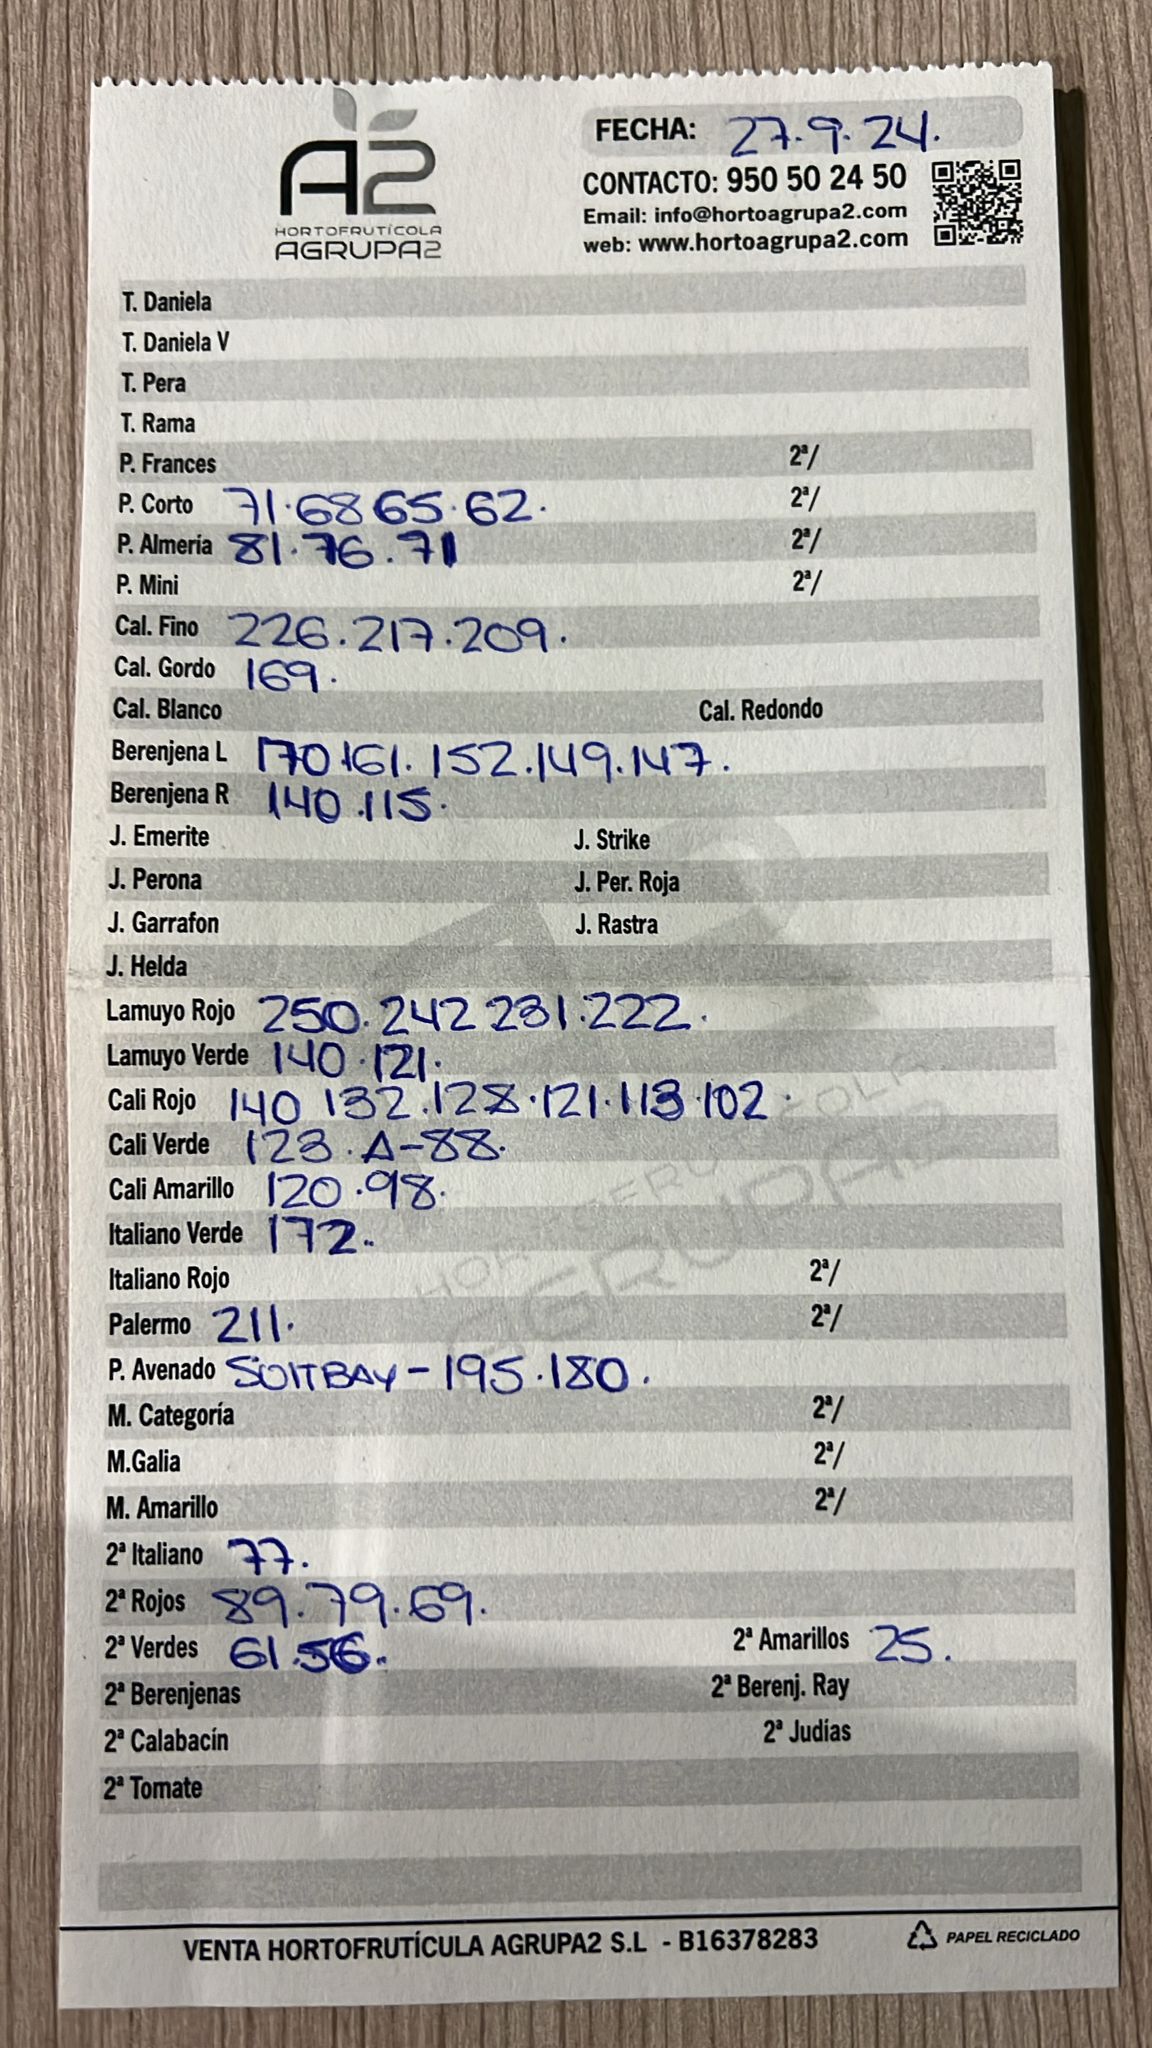 A2
HORTOFRUTÍCOLA
AGRUPA2
FECHA: 27.9.24.
CONTACTO: 950 50 24 50
Email: info@hortoagrupa2.com
web: www.hortoagrupa2.com
T. Daniela
T. Daniela V
T. Pera
T. Rama
P. Frances 2ª/
P. Corto 71.68 65.62. 2ª/
P. Almería 81.76.71 2ª/
P. Mini 2ª/
Cal. Fino 226.217.209.
Cal. Gordo 169.
Cal. Blanco Cal. Redondo
Berenjena L 170.161.152.149.147.
Berenjena R 140.115.
J. Emerite J. Strike
J. Perona J. Per. Roja
J. Garrafon J. Rastra
J. Helda
Lamuyo Rojo 250.242 231.222.
Lamuyo Verde 140.121.
Cali Rojo 140 132.128.121.113.102.
Cali Verde 123.A-88.
Cali Amarillo 120.98.
Italiano Verde 172..
Italiano Rojo 2ª/
Palermo 211. 2ª/
P. Avenado SUITBAY-195.180.
M. Categoría 2ª/
M.Galia 2ª/
M. Amarillo 2ª/
2ª Italiano 77.
2ª Rojos 89.79.69.
2ª Verdes 61.56.. 2ª Amarillos 25.
2ª Berenjenas 2ª Berenj. Ray
2ª Calabacín 2ª Judías
2ª Tomate
VENTA HORTOFRUTÍCULA AGRUPA2 S.L - B16378283 PAPEL RECICLADO